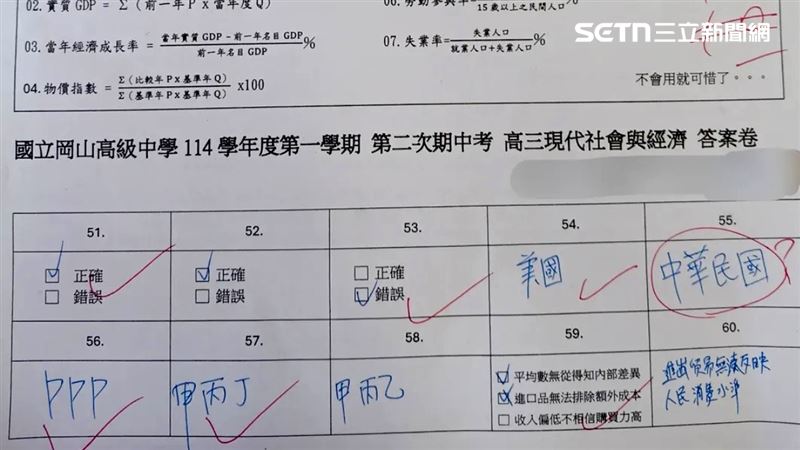 02. 實質 GDP = Σ（前一年 P x 當年度 Q）
15 歲以上之民間人口
SETN 三立新聞網
03. 當年經濟成長率 = 當年實質 GDP − 前一年名目 GDP / 前一年名目 GDP %
07. 失業率= 失業人口 / 就業人口+失業人口 %
04. 物價指數 = Σ（比較年 P x 基準年 Q） / Σ（基準年 P x 基準年 Q） x100
不會用就可惜了。。。
國立岡山高級中學 114 學年度第一學期 第二次期中考 高三現代社會與經濟 答案卷
51. 52. 53. 54. 55.
☑ 正確 ☑ 正確 ☐ 正確 美國 中華民國 ?
☐ 錯誤 ☐ 錯誤 ☑ 錯誤
56. 57. 58. 59. 60.
PPP 甲丙丁 甲丙乙
☑ 平均數無從得知內部差異
☑ 進口品無法排除額外成本
☐ 收入偏低不相信購買力高
進出貿易無法反映
人民消費水準